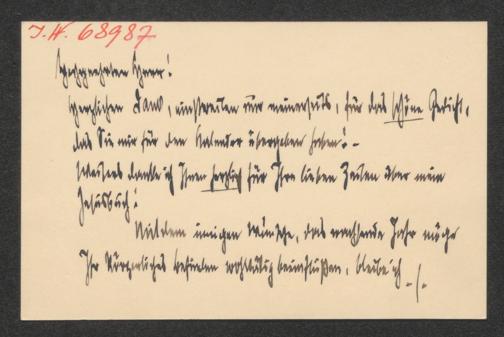 J.N. 68987
Hochgeehrter Herr!
Herzlichen Dank, einstweilen nur meinerseits, für das schöne Gedicht,
das Sie mir für den Kalender übergeben haben! -
Weiters danke ich Ihnen herzlich für Ihre lieben Zeilen über mein
Jesusbuch!
Mit dem innigen Wunsche, das nächste Jahr möge
Ihr Körperliches befinden wohltätig beeinflußen, bleibe ich